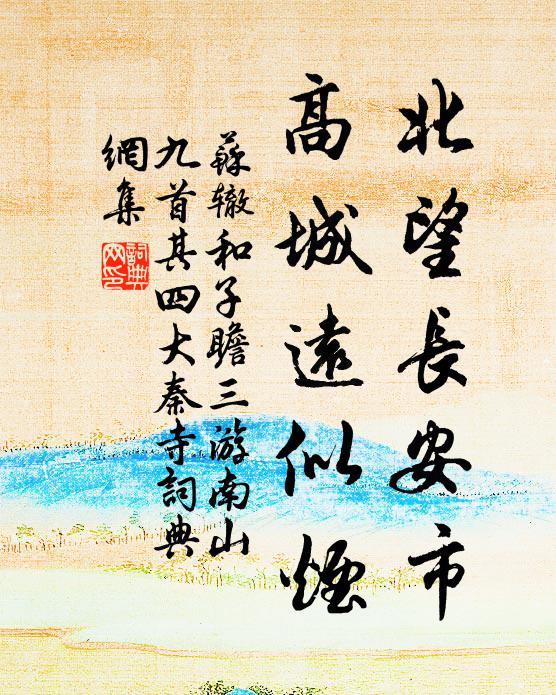 北望長安市
高城遠似煙
蘇轍和子瞻三游南山
九首其四大秦寺詞典
網集
詞典
网印